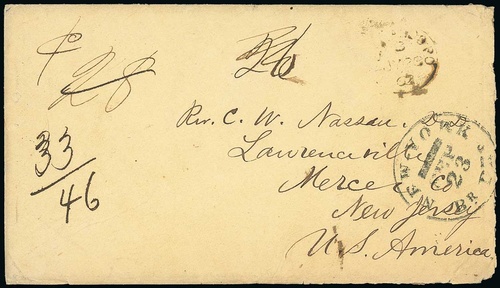 28
33
46
Rev. C. W. Nassau, D.D.
Lawrenceville
Mercer Co
New Jersey
U.S. America
NEW YORK
SEP
23
BR PKT